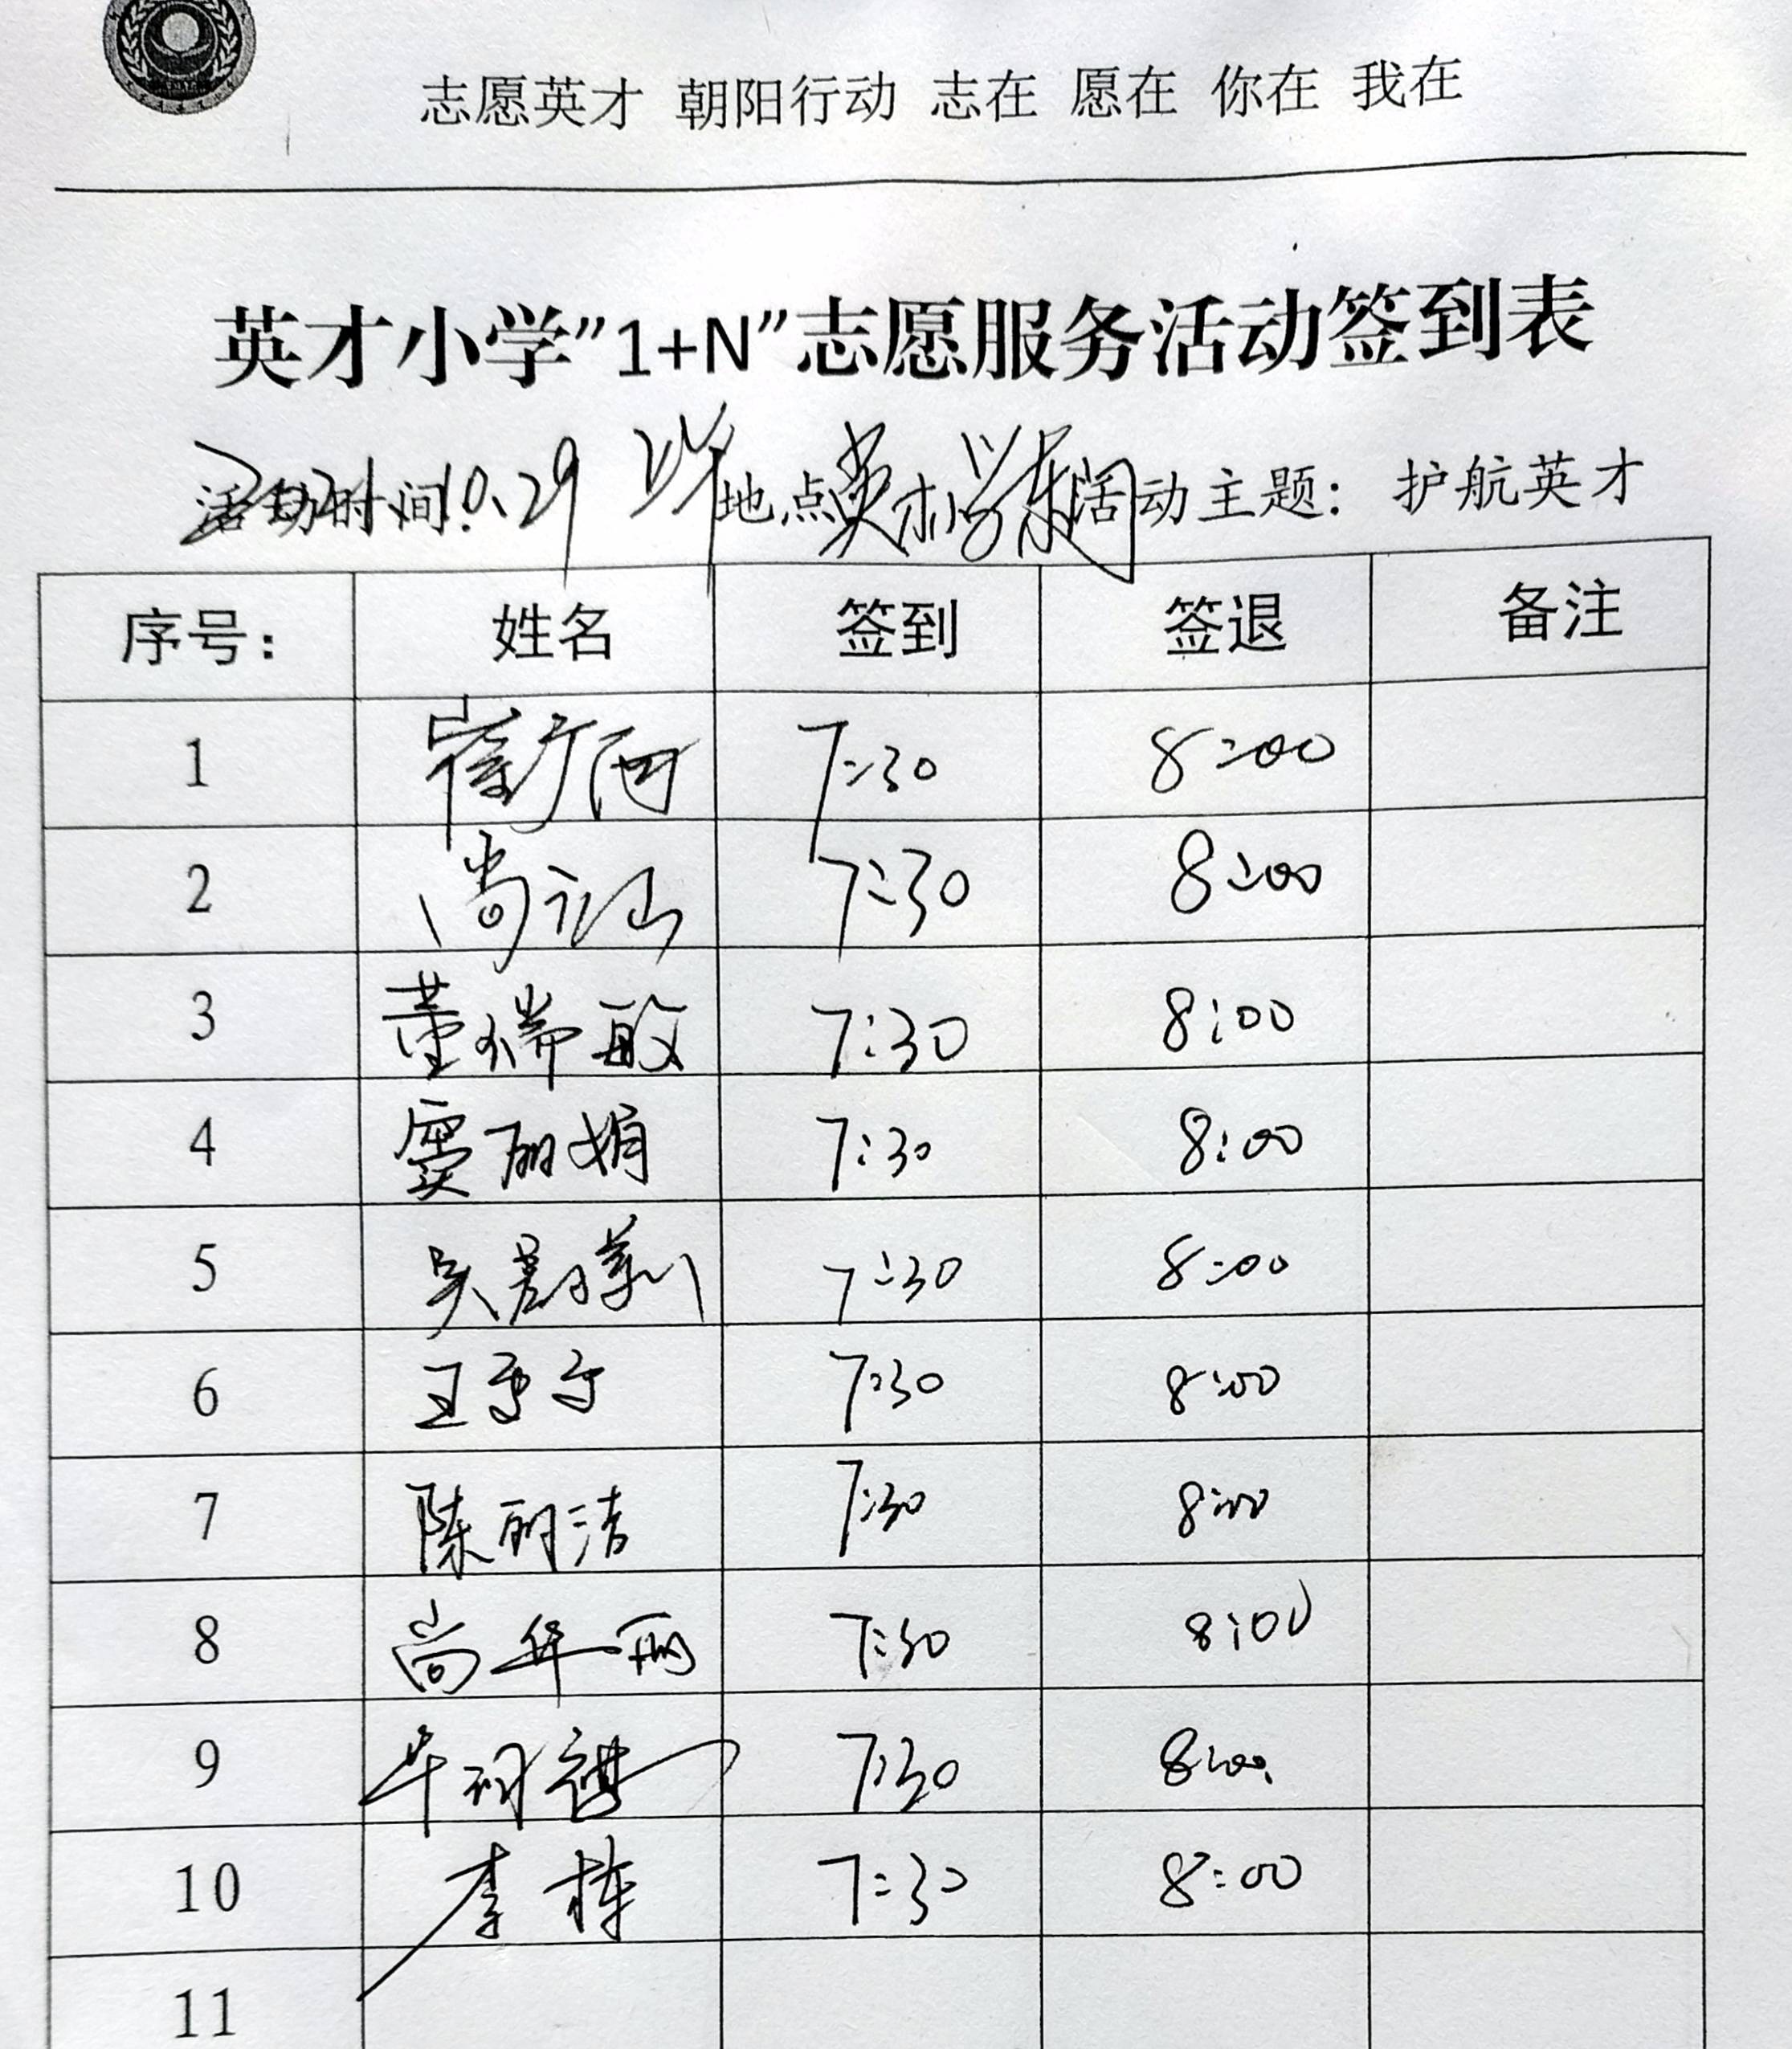 志愿英才 朝阳行动 志在 愿在 你在 我在
英才小学”1+N”志愿服务活动签到表
活动时间:10.29 地点英才小学东门活动主题：护航英才
序号： 姓名 签到 签退 备注
1 7:30 8:00
2 尚 7:30 8:00
3 董瑞敏 7:30 8:00
4 窦丽娟 7:30 8:00
5 吴 7:30 8:00
6 王 7:30 8:00
7 陈丽洁 7:30 8:00
8 尚华丽 7:30 8:00
9 7:30 8:00
10 李栋 7:30 8:00
11